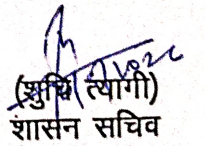 (शुचि त्यागी)
शासन सचिव